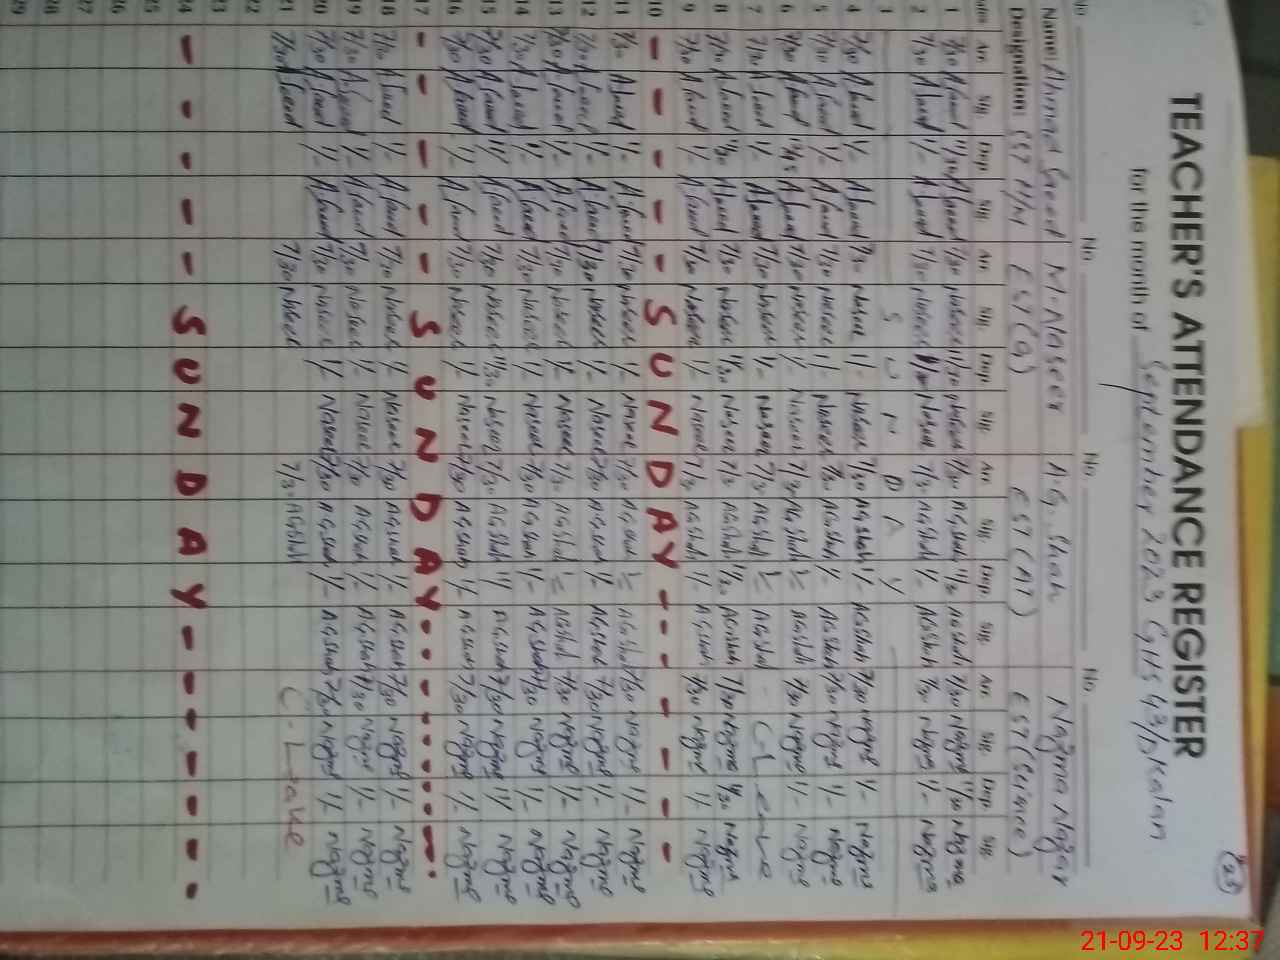 TEACHER'S ATTENDANCE REGISTER
for the month of September 2023 GHS 43/D Kalan
No. No. No. No.
Name: Ahmad Saeed M. Naseer A.G. Shah Nagma Nagar
Designation: EST H/M EST (G) EST (AT) EST (Science)
Dates Arr. Sig. Dep. Sig. Arr. Sig. Dep. Sig. Arr. Sig. Dep. Sig. Arr. Sig. Dep. Sig.
1 7/30 Asaeed 11/30 Asaeed 7/30 Naseer 11/30 Naseer 7/30 AG.Shah 11/30 AG.Shah 7/30 Nagma 11/30 Nagma
2 7/30 Asaeed 1/- Asaeed 7/30 Naseer Naseer 7/30 AG.Shah 1/- AG.Shah 7/30 Nagma 1/- Nagma
3 S U N D A Y
4 7/30 Asaeed 1/- Asaeed 7/30 Naseer 1/- Naseer 7/30 AG.Shah 1/- AG.Shah 7/30 Nagma 1/- Nagma
5 7/30 Asaeed 1/- Asaeed 7/30 Naseer 1/- Naseer 7/30 AG.Shah 1/- AG.Shah 7/30 Nagma 1/- Nagma
6 7/30 Asaeed Asaeed 7/30 Naseer 1/- Naseer 7/30 AG.Shah 1/- AG.Shah 7/30 Nagma 1/- Nagma
7 7/30 Asaeed 1/- Asaeed 7/30 Naseer 1/- Naseer 7/30 AG.Shah 1/- AG.Shah - C-Leave
8 7/30 Asaeed 11/30 Asaeed 7/30 Naseer 11/30 Naseer 7/30 AG.Shah 11/30 AG.Shah 7/30 Nagma 11/30 Nagma
9 7/30 Asaeed 1/- Asaeed 7/30 Naseer 1/- Naseer 7/30 AG.Shah 1/- AG.Shah 7/30 Nagma 1/- Nagma
10 - - - - - S U N D A Y - - - - -
11 7/30 Asaeed 1/- Asaeed 7/30 Naseer 1/- Naseer 7/30 AG.Shah 1/- AG.Shah 7/30 Nagma 1/- Nagma
12 7/30 Asaeed 1/- Asaeed 7/30 Naseer 1/- Naseer 7/30 AG.Shah 1/- AG.Shah 7/30 Nagma 1/- Nagma
13 7/30 Asaeed 1/- Asaeed 7/30 Naseer 1/- Naseer 7/30 AG.Shah 1/- AG.Shah 7/30 Nagma 1/- Nagma
14 7/30 Asaeed 1/- Asaeed 7/30 Naseer 1/- Naseer 7/30 AG.Shah 1/- AG.Shah 7/30 Nagma 1/- Nagma
15 7/30 Asaeed Asaeed 7/30 Naseer 11/30 Naseer 7/30 AG.Shah AG.Shah 7/30 Nagma Nagma
16 7/30 Asaeed 1/- Asaeed 7/30 Naseer 1/- Naseer 7/30 AG.Shah 1/- AG.Shah 7/30 Nagma 1/- Nagma
17 - - - - - S U N D A Y - - - - -
18 7/30 Asaeed 1/- Asaeed 7/30 Naseer 1/- Naseer 7/30 AG.Shah 1/- AG.Shah 7/30 Nagma 1/- Nagma
19 7/30 Asaeed 1/- Asaeed 7/30 Naseer 1/- Naseer 7/30 AG.Shah 1/- AG.Shah 7/30 Nagma 1/- Nagma
20 7/30 Asaeed 1/- Asaeed 7/30 Naseer 1/- Naseer 7/30 AG.Shah 1/- AG.Shah 7/30 Nagma 1/- Nagma
21 7/30 Asaeed 7/30 Naseer 7/30 AG.Shah C-Leave
22
23
24 - - - - - S U N D A Y - - - - - -
25
26
27
28
29
21-09-23 12:37